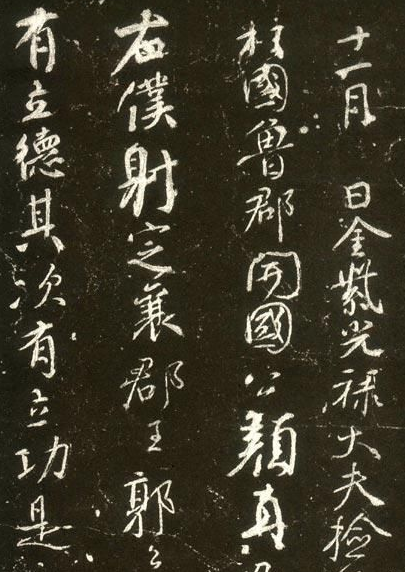 十一月　日金紫光祿大夫檢
柱國魯郡開國公顏真
右僕射定襄郡王郭公
有立德其次有立功是